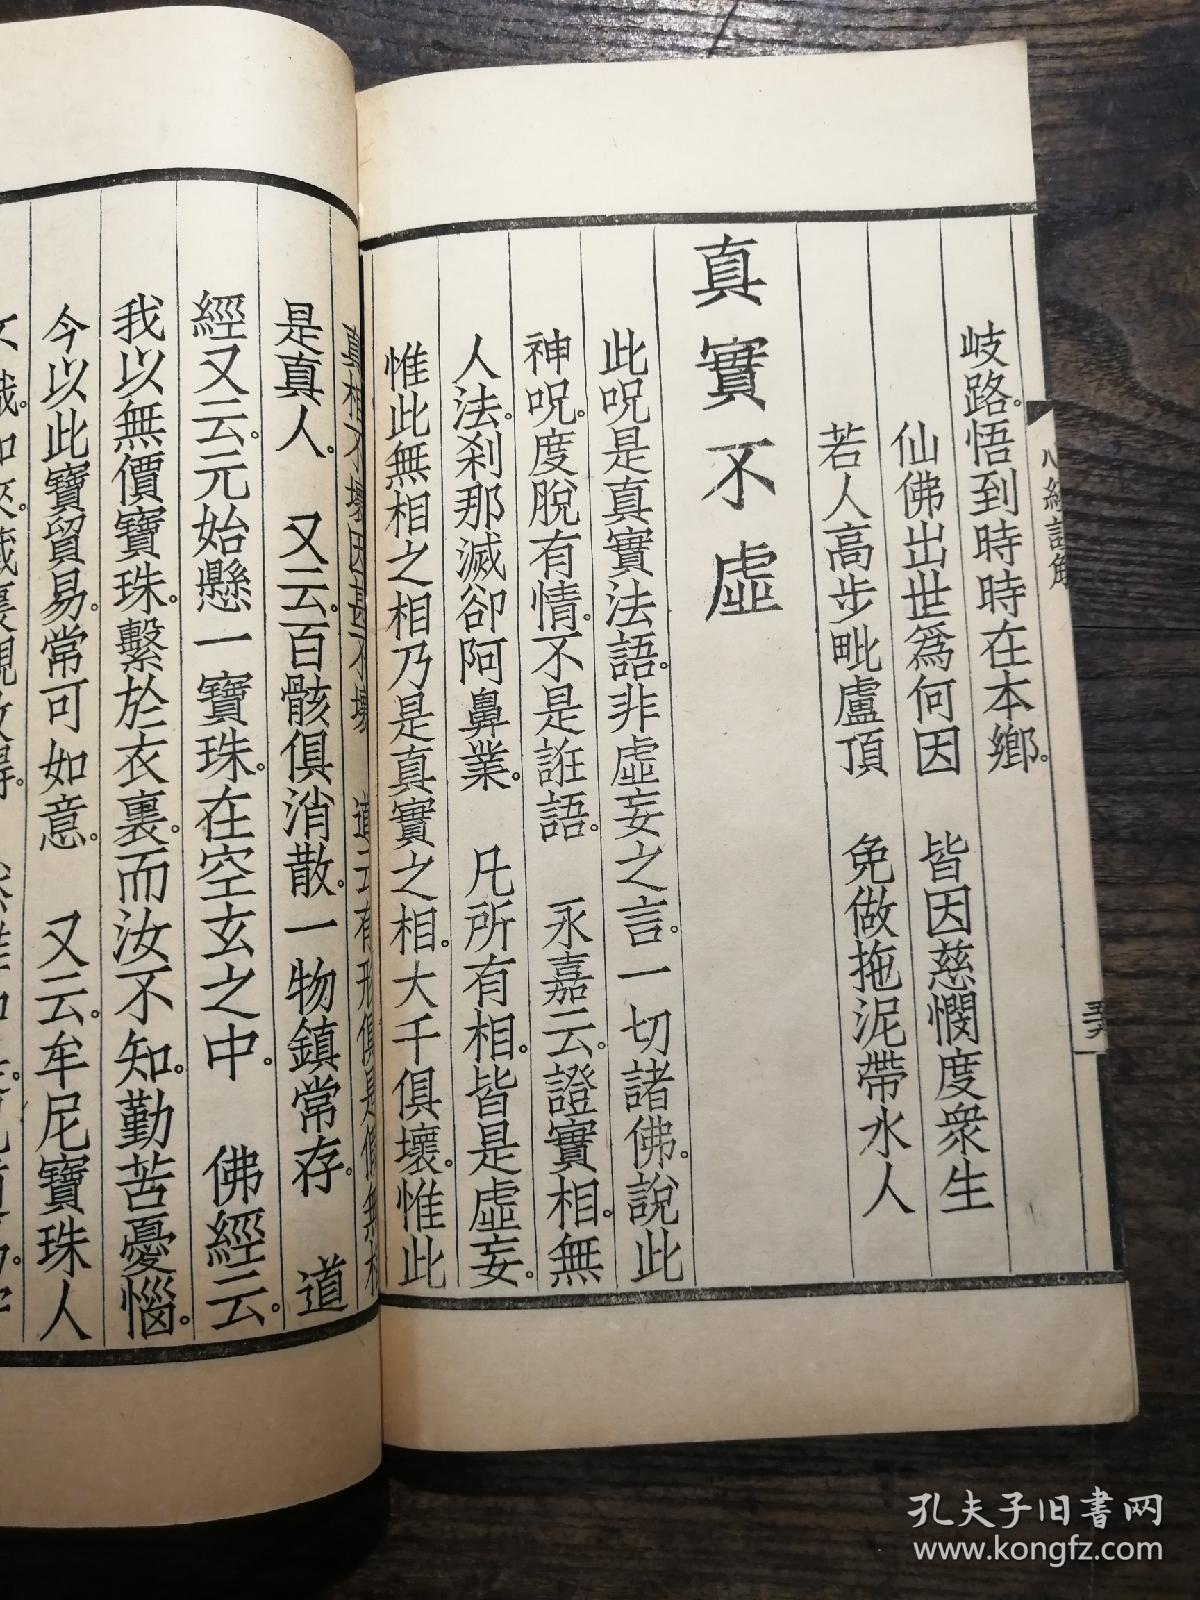 岐路。悟到時時在本鄉。
仙佛出世爲何因　皆因慈憫度衆生
若人高步毗盧頂　免做拖泥帶水人
真實不虛
此呪是真實法語。非虛妄之言。一切諸佛。說此
神呪。度脫有情。不是誑語。　永嘉云。證實相。無
人法。剎那滅卻阿鼻業。　凡所有相。皆是虛妄。
惟此無相之相乃是真實之相。大千俱壞。惟此
真相不壞因甚不壞　道云有形俱是假無相
是真人。　又云。百骸俱消散。一物鎮常存。　道
經又云。元始懸一寶珠。在空玄之中。　佛經云。
我以無價寶珠。繫於衣裏。而汝不知。勤苦憂惱。
今以此寶貿易。常可如意。　又云。牟尼寶珠人
孔夫子旧書网
www.kongfz.com